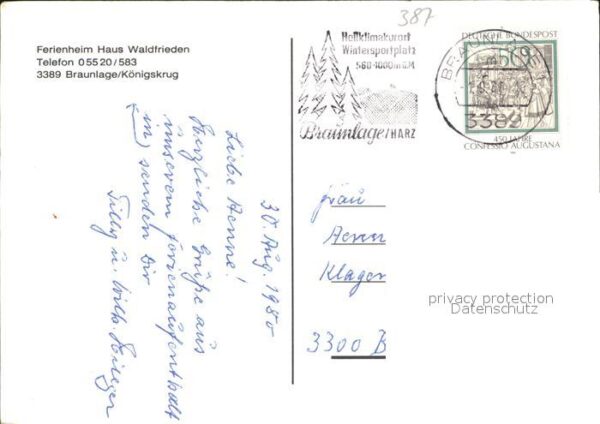 387
Ferienheim Haus Waldfrieden
Telefon 0 55 20 / 583
3389 Braunlage/Königskrug
Heilklimakurort
Wintersportplatz
560-1000m ü.M
Braunlage/HARZ
BRAUNLAGE
3389
DEUTSCHE BUNDESPOST
50
450 JAHRE
CONFESSIO AUGUSTANA
30. Aug. 1980
Liebe Aenne!
Herzliche Grüße aus
unserem Ferienaufenthalt
senden Dir
Tilly u. Willi
Frau
Aenn
Klages
3300 B
privacy protection
Datenschutz